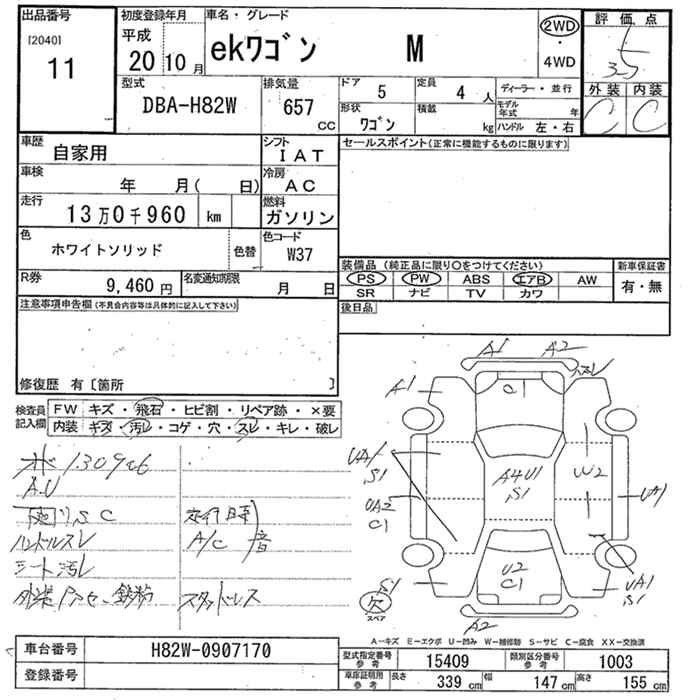 出品番号
[2040]
11
初度登録年月
平成
20 10 月
車名・グレード
ekワゴン M
2WD
・
4WD
評価点
外装 内装
C C
型式
DBA-H82W
排気量
657
cc
ドア 5
定員 4 人
形状
ワゴン
積載
kg
ディーラー・並行
モデル年式 年
ハンドル 左・右
車歴
自家用
シフト
IAT
車検
年 月( 日)
冷房
AC
走行
13万0千960 km
燃料
ガソリン
色
ホワイトソリッド
色替
色コード
W37
R券
9,460 円
名変通知期限
月 日
セールスポイント(正常に機能するものに限ります)
装備品 (純正品に限り○をつけてください)
新車保証書
PS PW ABS エアB AW
SR ナビ TV カワ
有・無
後日品
注意事項申告欄(不具合内容等は具体的に記入して下さい)
修復歴 有〔箇所 〕
検査員記入欄
FW キズ・飛石・ヒビ割・リペア跡・×要
内装 キズ・汚レ・コゲ・穴・スレ・キレ・破レ
A,U
下廻り,S C
走行時
ハンドルスレ
A/C 音
シート汚レ
スタッドレス
A1 A2
A1
C1
スレ
UA1
S1
A4U1
S1
W2
UA1
UA2
C1
U2
C1
S1
UA1
S1
欠
スペア
A2
A－キズ E－エクボ U－凹み W－補修跡 S－サビ C－腐食 XX－交換済
車台番号 H82W-0907170
登録番号
型式指定番号
参考
15409
類別区分番号
参考
1003
車庫証明用
参考
長さ 339 cm
幅 147 cm
高さ 155 cm